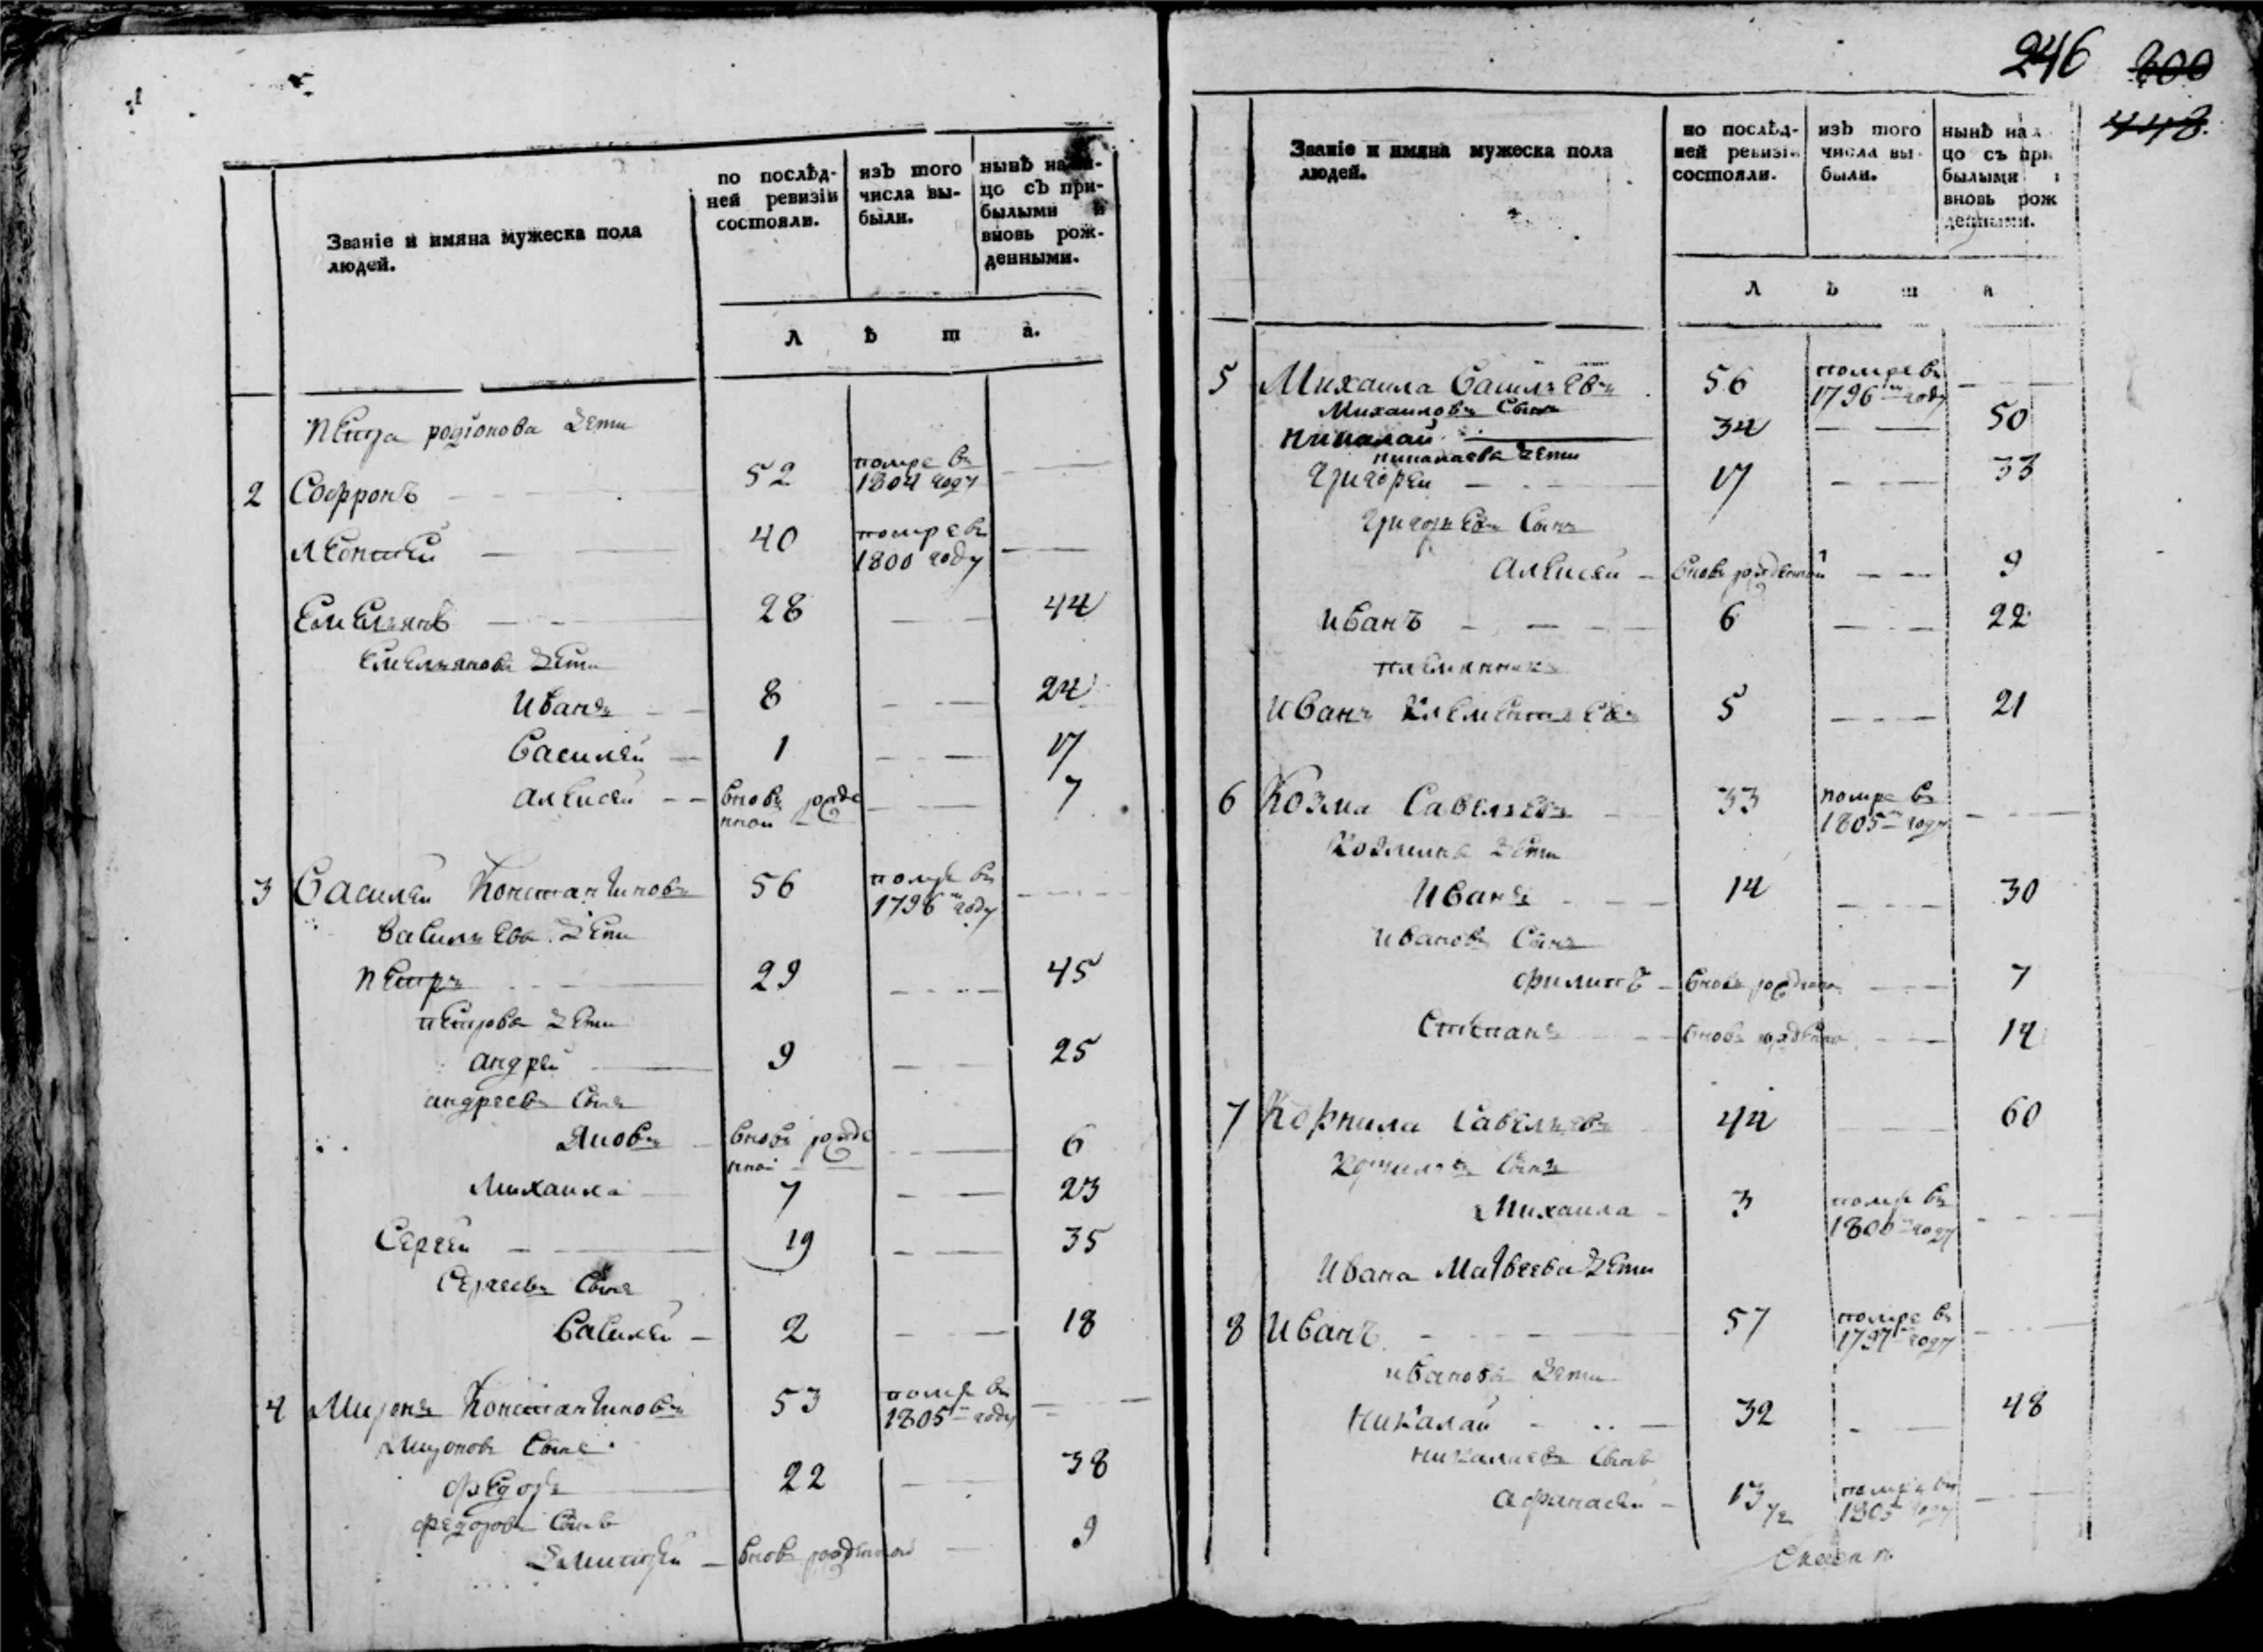 Званіе и имяна мужеска пола
людей.
по послѣд-
ней ревизіи
состояли.
изъ того
числа вы-
были.
нынѣ нали-
цо съ при-
былыми и
вновь рож-
денными.
л ѣ т а.
Петра родіонова дети
2 Софронъ 52 помре въ 1804 году
Леонтей 40 помре въ 1800 году
Емельянъ 28 44
Емельяновы дети
Иванъ 8 24
Василей 1 17
Алексей вновь рожде нной 7
3 Василей Константиновъ 56 помре въ 1796м году
Васильевы дети
Петръ 29 45
Петровы дети
Андрей 9 25
Андреевъ сынъ
Яковъ вновь рожде нной 6
Михайла 7 23
Сергей 19 35
Сергеевъ сынъ
Василей 2 18
4 Миронъ Константиновъ 53 помре въ 1805м году
Мироновъ сынъ
Федоръ 22 38
Федоровъ сынъ
Дмитрей вновь рожденной 9
246 200
448
Званіе и имяна мужеска пола
людей.
по послѣд-
ней ревизіи
состояли.
изъ того
числа вы-
были.
нынѣ нал
цо съ при
былыми и
вновь рож
денными.
л ѣ т а
5 Михаила Васильевъ 56 помре въ 1796м году
Михаиловъ сынъ
Николай 34 50
Николаевы дети
Григорей 17 33
Григорьевъ сынъ
Алексей вновь рожденной 9
Иванъ 6 22
племянникъ
Иванъ Клементьевъ 5 21
6 Козма Савельевъ 33 помре въ 1805м году
Козмины дети
Иванъ 14 30
Ивановъ сынъ
Филипъ вновь рожденно 7
Степанъ вновь рожденно 14
7 Корнила Савельевъ 44 60
Корниловъ сынъ
Михаила 3 помре въ 1806м году
Ивана Матвеева дети
8 Иванъ 57 помре въ 1797м году
Ивановы дети
Николай 32 48
Николаевъ сынъ
Афанасей 13 1/2 помре въ 1805 году